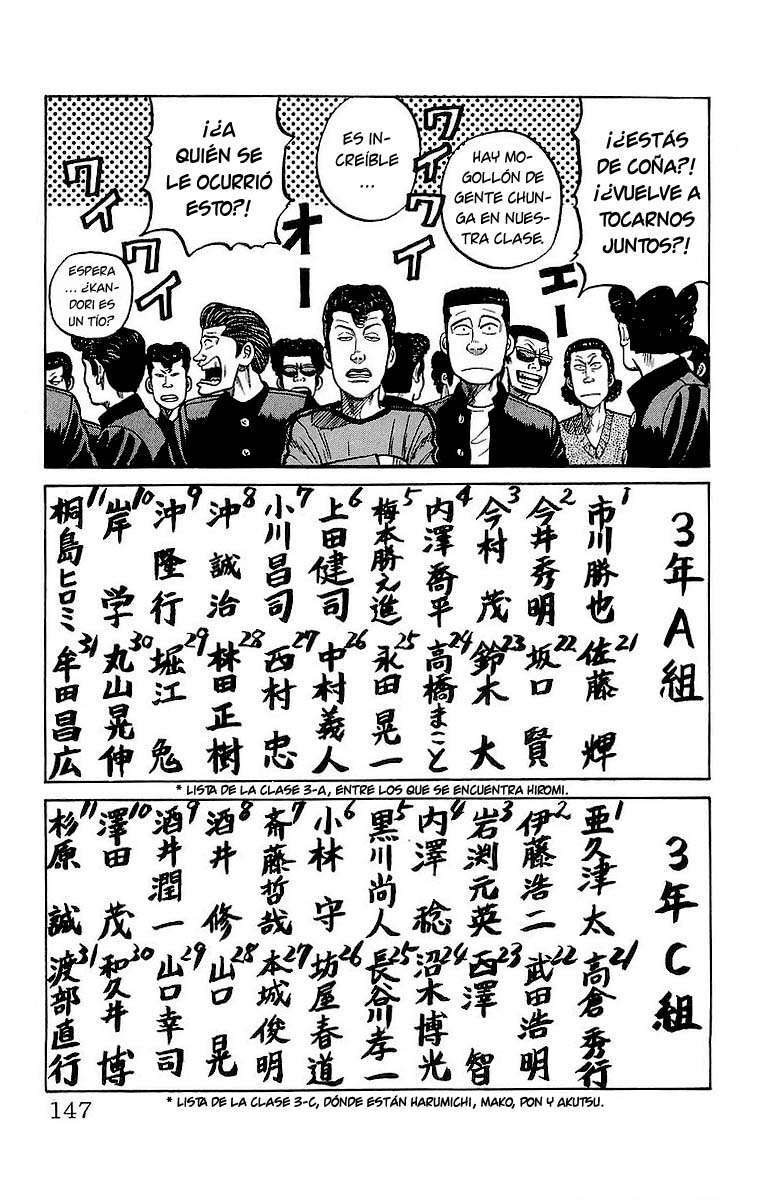 ¡¿ESTÁS
DE COÑA?!
¡¿VUELVE A
TOCARNOS
JUNTOS?!
エー
HAY MO-
GOLLÓN DE
GENTE CHUN-
GA EN NUES-
TRA CLASE.
ワイワイ
ES IN-
CREÍBLE
...
オー
¡¿A
QUIÉN SE
LE OCURRIÓ
ESTO?!
ワイワイ
ESPERA
... ¿KAN-
DORI ES
UN TÍO?
3年A組
1 市川勝也
2 今井秀明
3 今村茂
4 内澤喬平
5 梅本勝之進
6 上田健司
7 小川昌司
8 沖誠治
9 沖隆行
10 岸学
11 桐島ヒロミ
21 佐藤輝
22 坂口賢
23 鈴木大
24 高橋まこと
25 永田晃一
26 中村義人
27 西村忠
28 林田正樹
29 堀江兎
30 丸山晃伸
31 牟田昌広
* LISTA DE LA CLASE 3-A, ENTRE LOS QUE SE ENCUENTRA HIROMI.
3年C組
1 亜久津太
2 伊藤浩二
3 岩渕元英
4 内澤稔
5 黒川尚人
6 小林守
7 斎藤哲哉
8 酒井修
9 酒井潤一
10 澤田茂
11 杉原誠
21 高倉秀行
22 武田浩明
23 西澤智
24 沼木博光
25 長谷川孝一
26 坊屋春道
27 本城俊明
28 山口晃
29 山口幸司
30 和久井博
31 渡部直行
* LISTA DE LA CLASE 3-C, DÓNDE ESTÁN HARUMICHI, MAKO, PON Y AKUTSU.
147